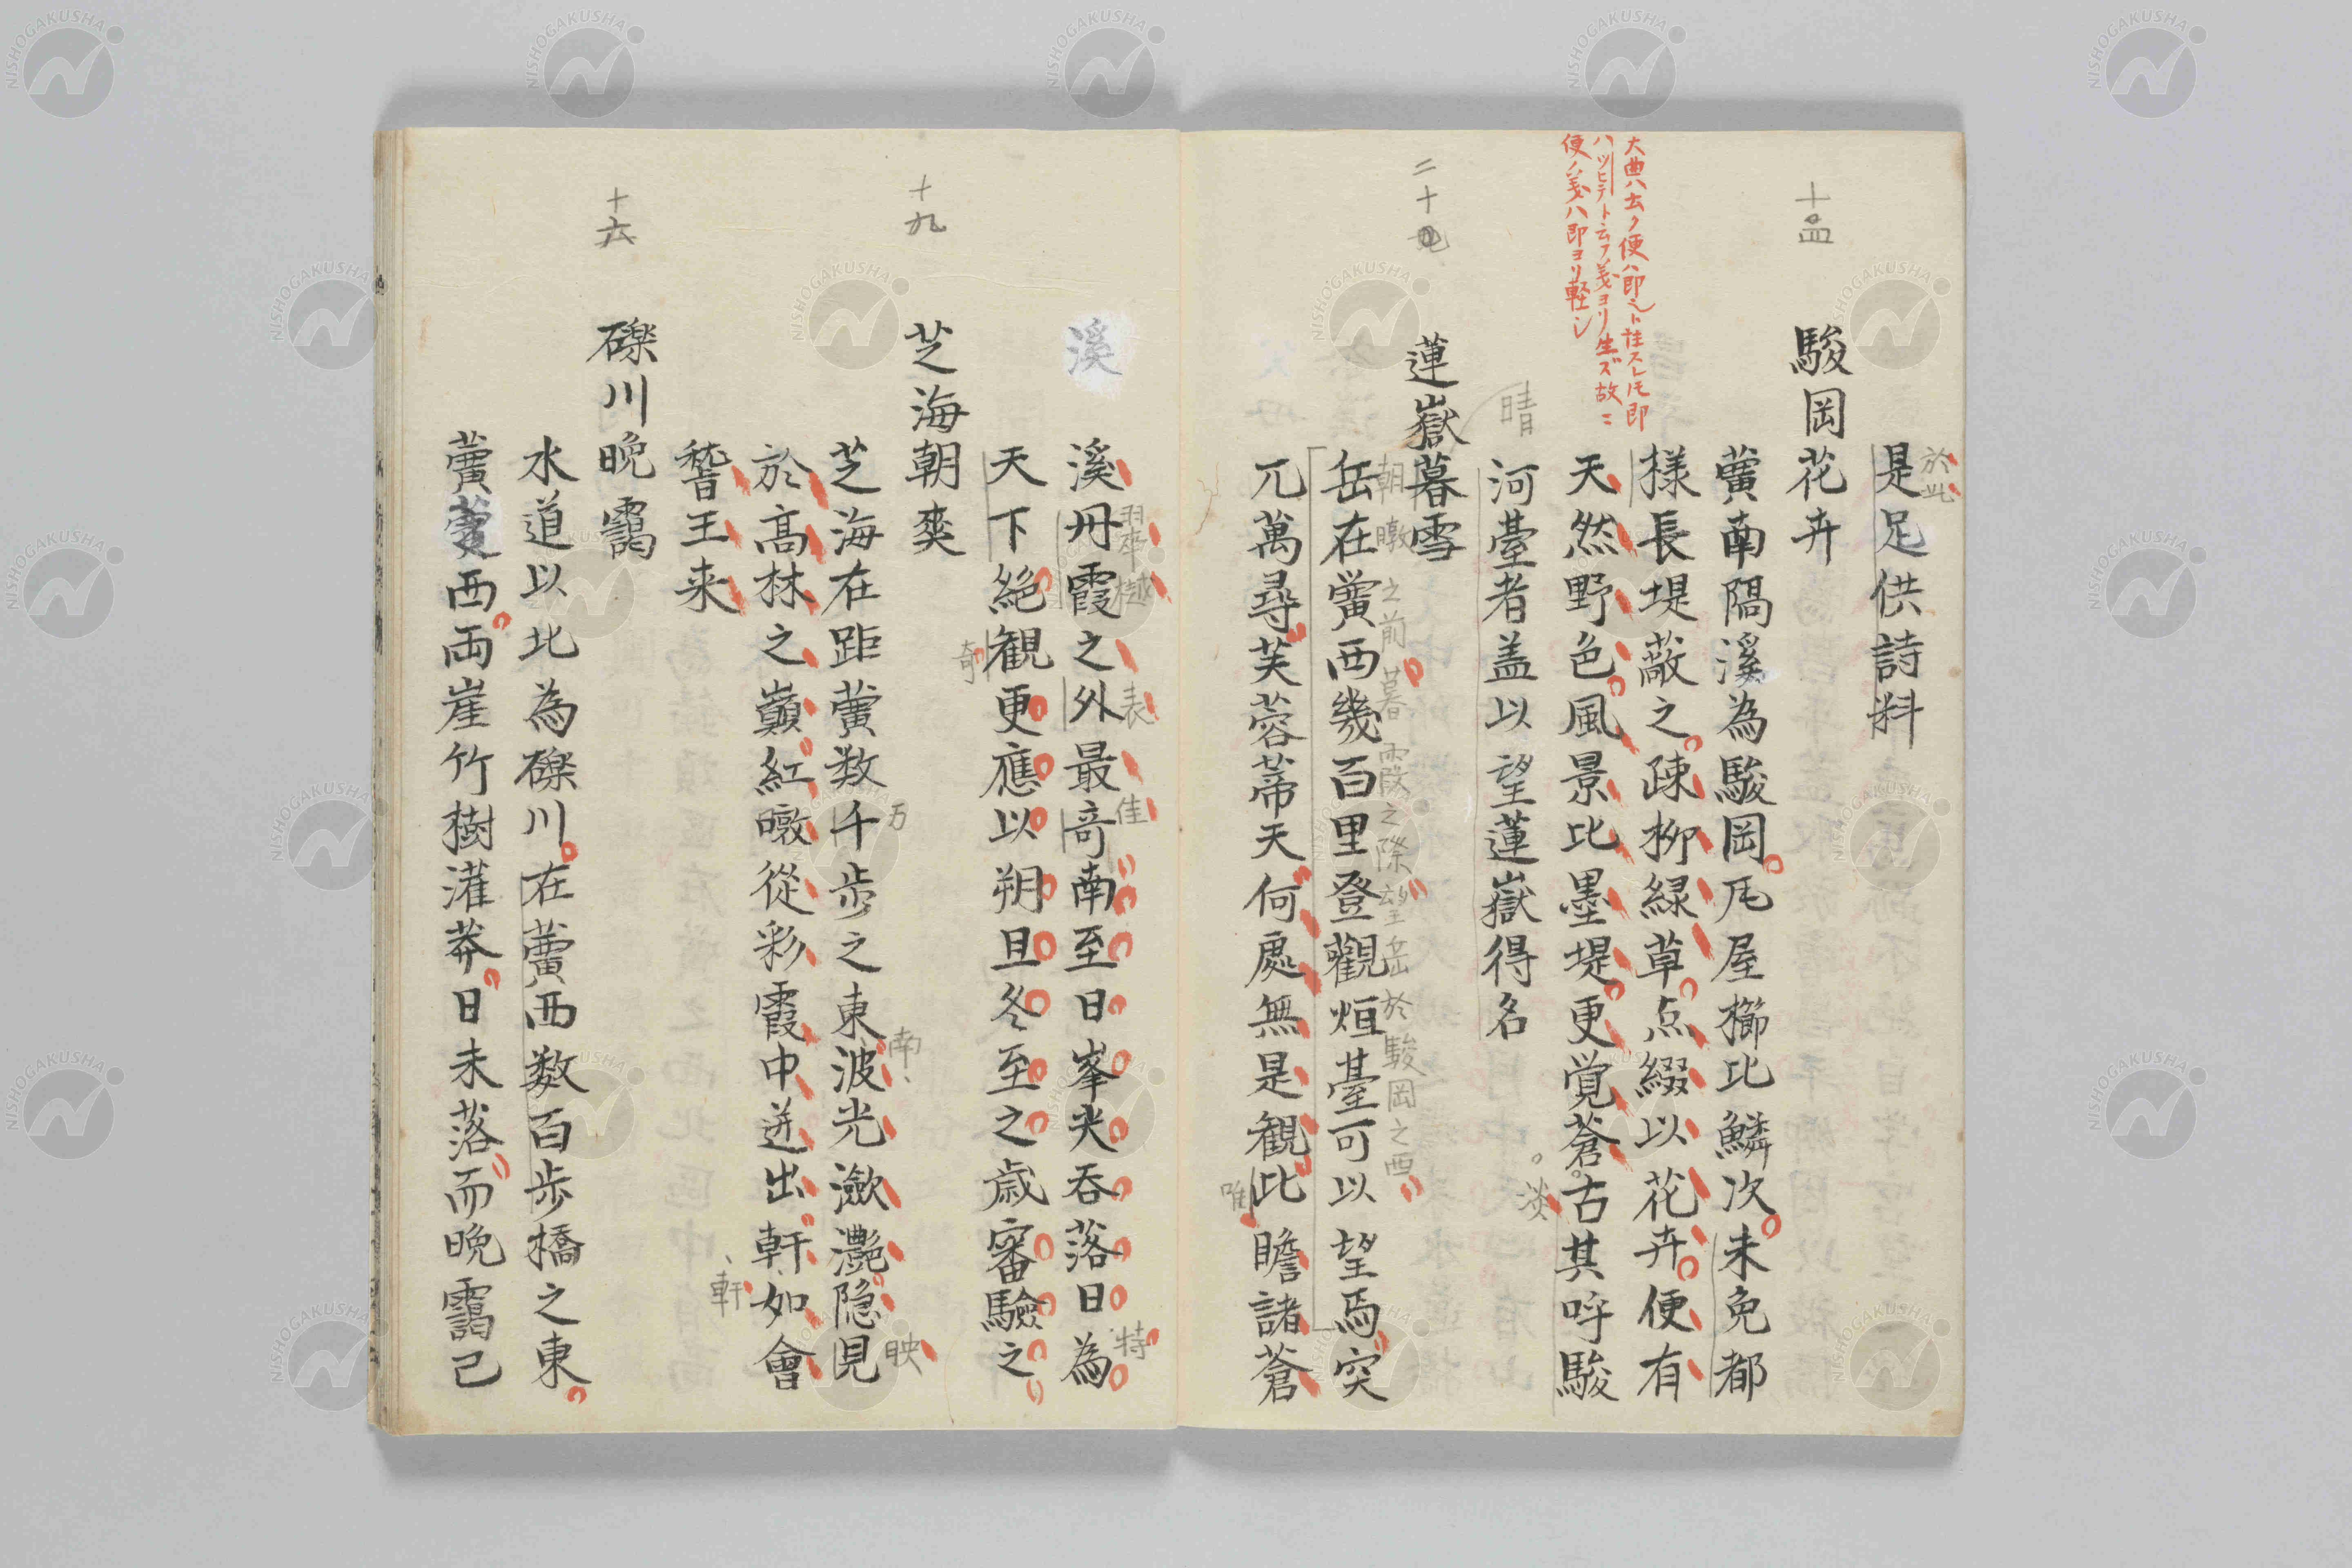 十四
於此
是足供詩料
駿岡花卉
黌南隔溪為駿岡凥屋櫛比鱗次未免都
様長堤蔽之疎柳緑草点綴以花卉便有
天然野色風景比墨堤更覚蒼古其呼駿
淡
大典ハ去ク便ハ即
便ノ義ハ即ヨリ軽シ
晴
河臺者盖以望蓮嶽得名
二十
蓮嶽暮雪
朝暾之前暮霞之際望岳於駿岡之西
岳在黌西幾百里登觀烜臺可以望焉突
兀萬尋芙蓉蒂天何處無是観比瞻諸蒼
唯
溪
翠樾
表
佳
特
溪丹霞之外最竒南至日峯夾吞落日為
天下絕観更應以朔旦冬至之歳審驗之
奇
十九
芝海朝爽
万
南
映
芝海在距黌数千步之東波光瀲灔隐見
於高林之巔紅暾從彩霞中迸出軒如會
軒
稽王来
十六
礫川晩靄
水道以北為礫川在黌西数百步橋之東
黌西両崖竹樹灌莽日未落而晩靄已
NISHOGAKUSHA